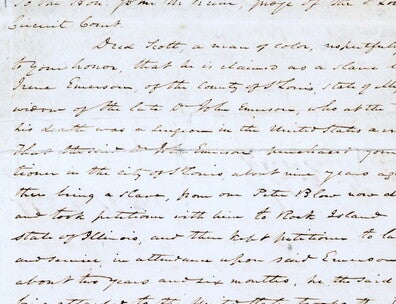 To the Hon. John M. Krum, Judge of the St Lo
Circuit Court
Dred Scott, a man of color, respectfully
to your honor, that he is claimed as a slave
Irene Emerson, of the County of St Louis, State of
widow of the late Dr John Emerson, who at the
his death was a surgeon in the United States a
That the said Dr John Emerson purchased your
tioner in the city of St Louis, about nine years ag
then being a slave, from one Peter Blow now d
and took petitioner with him to Rock Island
State of Illinois, and then kept petitioner to la
and service, in attendance upon said Emerson
about two years and six months, he the said